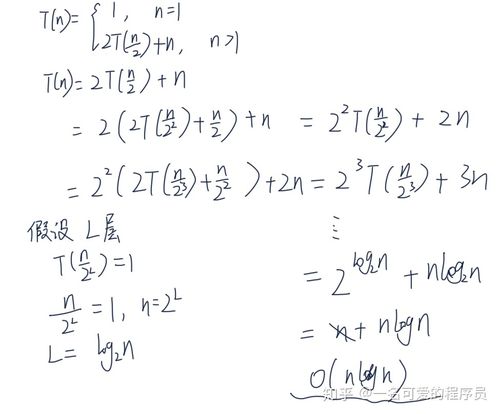 T(n)= { 1, n=1
2T(n/2)+n, n>1
T(n)= 2T(n/2)+n
= 2(2T(n/2²)+n/2)+n = 2²T(n/2²)+2n
= 2²(2T(n/2³)+n/2²)+2n = 2³T(n/2³)+3n
假设 L层
T(n/2^L)=1
n/2^L=1, n=2^L
L= log₂n
⋮
= 2^(log₂n) + nlog₂n
= n + nlogn
O(nlogn)
知乎 @一名可爱的程序员